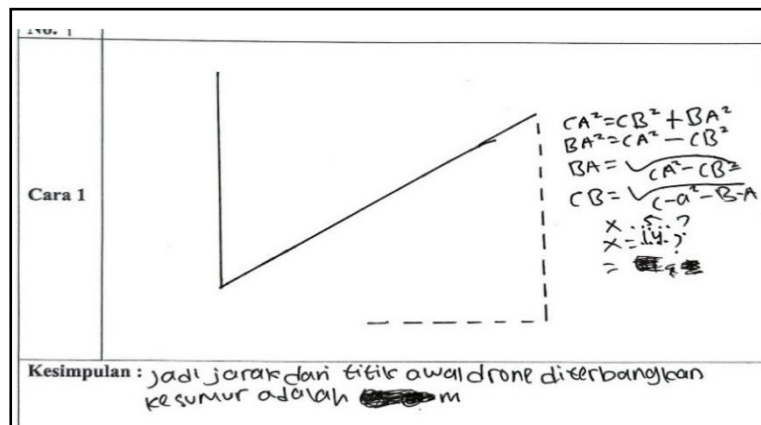 No. 1
Cara 1
CA²=CB²+BA²
BA²=CA²-CB²
BA=√CA²-CB²
CB=√C-a²-B-A
x
x=
=
Kesimpulan : jadi jarak dari titik awal drone diterbangkan
ke sumur adalah m